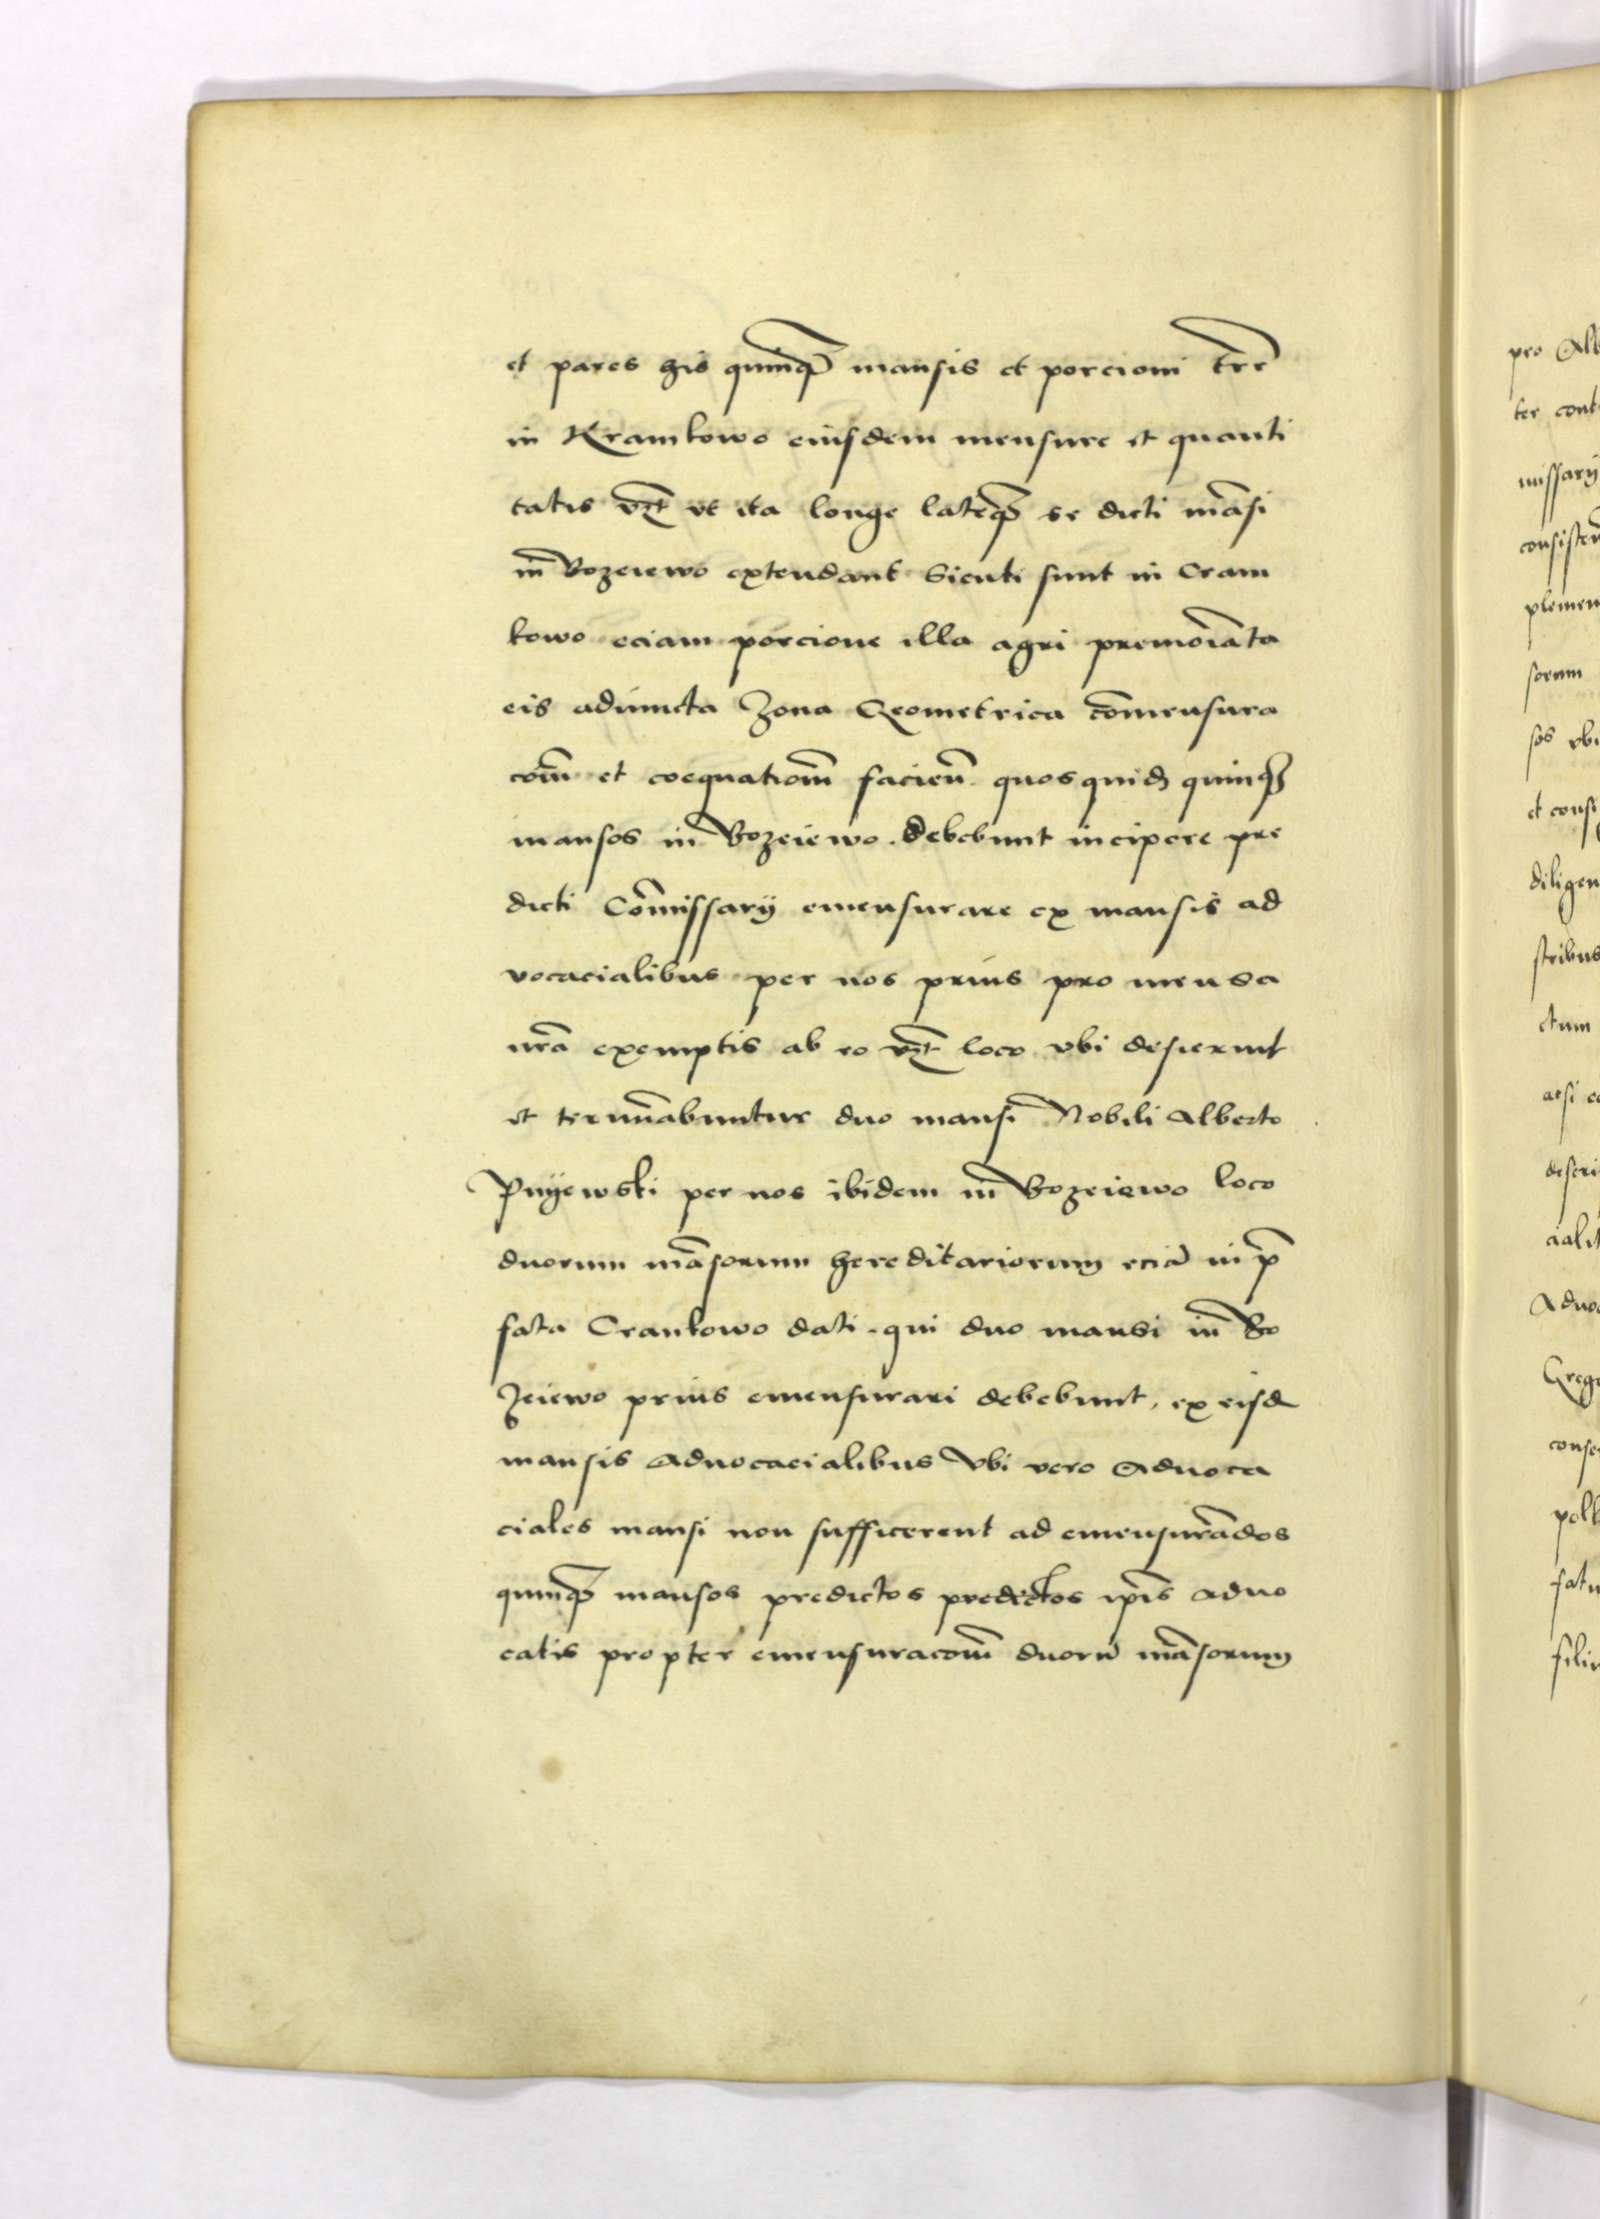 et pares his quinq mansis et porcioni tre
in Kramkowo eiusdem mensure et quanti
tatis vz ut ita longe lateq se dicti mãsi
in Bozeiewo extendant Sicuti sunt in Cram
kowo eciam porcione illa agri premoiãta
eis adiuncta Zona Geometrica cõmensura
com̃ et coequatiom̃ facien̄ quosquid quinq
mansos in Bozeiewo . debebunt incipere pre
dicti Cõmissarij emensurare ex mansis ad
vocacialibus per nos prius pro mensa
nr̃a exemptis ab eo vz loco vbi desierunt
et termĩabuntur duo mansi Nobili Alberto
Pnijewski per nos ibidem in Bozeiewo loco
duorum mãsorum hereditariorum eciã in p̃
fata Crankowo dati . qui duo mansi in Bo
zeiewo prius emensurari debebunt , ex eisd
mansis Aduocacialibus Vbi vero Aduoca
ciales mansi non sufficerent ad emensurãdos
quinq mansos predictos predictos ip̃is aduo
catis propter emensuracom̃ duorũ mãsorum
pro Alb
ter cont
missarij
consisten
plemen
sorum
sos vbi
et consi
diligen
stribus
ctum
descri
Aduo
Greg
conse
fatu